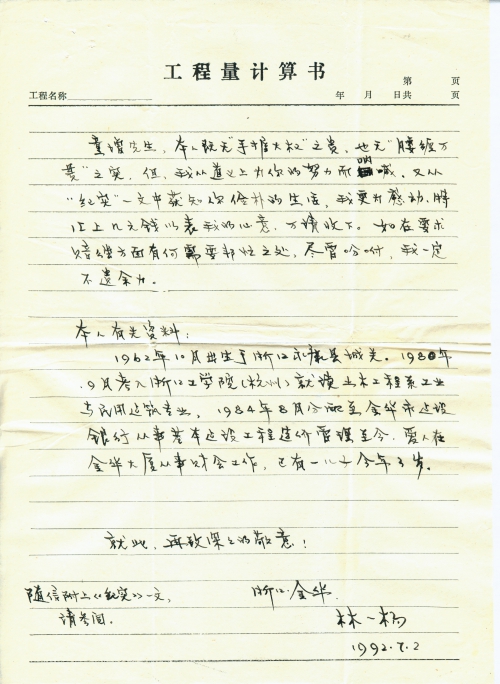 工程量计算书
第 页
工程名称 年 月 日共 页
童增先生,本人既无"手握大权"之贵,也无"腰缠万
贯"之实,但,我从道义上为你的努力而呐喊。又从
"纪实"一文中获知你俭朴的生活,我更为感动,随
汇上几元钱以表我的心意,万请收下。如在要求
赔偿方面有何需要帮忙之处,尽管吩咐,我一定
不遗余力。
本人有关资料:
1962年10月出生于浙江永康县城关。1980年
9月考入浙江工学院(杭州)就读土木工程系工业
与民用建筑专业,1984年8月分配至金华市建设
银行从事基本建设工程造价管理至今,爱人在
金华大厦从事财会工作,已有一儿子今年3岁。
就此,再致深深的敬意!
随信附上《纪实》一文, 浙江·金华
请参阅。 林一杨
1992.7.2